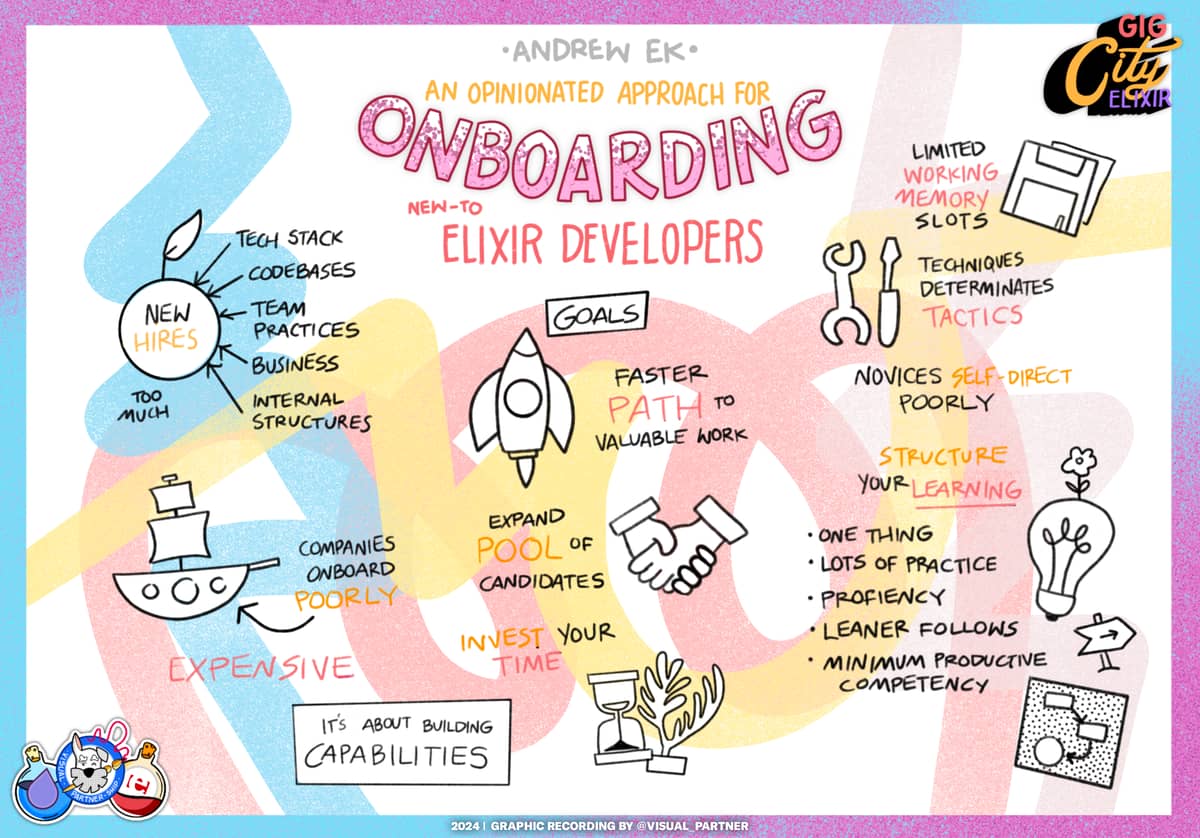 ·ANDREW EK·
AN OPINIONATED APPROACH FOR
ONBOARDING
NEW-TO
ELIXIR DEVELOPERS
GIG
City
ELIXIR
NEW
HIRES
TOO
MUCH
TECH STACK
CODEBASES
TEAM
PRACTICES
BUSINESS
INTERNAL
STRUCTURES
COMPANIES
ONBOARD
POORLY
EXPENSIVE
GOALS
FASTER
PATH TO
VALUABLE WORK
EXPAND
POOL OF
CANDIDATES
INVEST YOUR
TIME
IT'S ABOUT BUILDING
CAPABILITIES
LIMITED
WORKING
MEMORY
SLOTS
TECHNIQUES
DETERMINATES
TACTICS
NOVICES SELF-DIRECT
POORLY
STRUCTURE
YOUR LEARNING
· ONE THING
· LOTS OF PRACTICE
· PROFIENCY
· LEANER FOLLOWS
· MINIMUM PRODUCTIVE
COMPETENCY
VISUAL
PARTNER-SHIP
2024 | GRAPHIC RECORDING BY @VISUAL_PARTNER